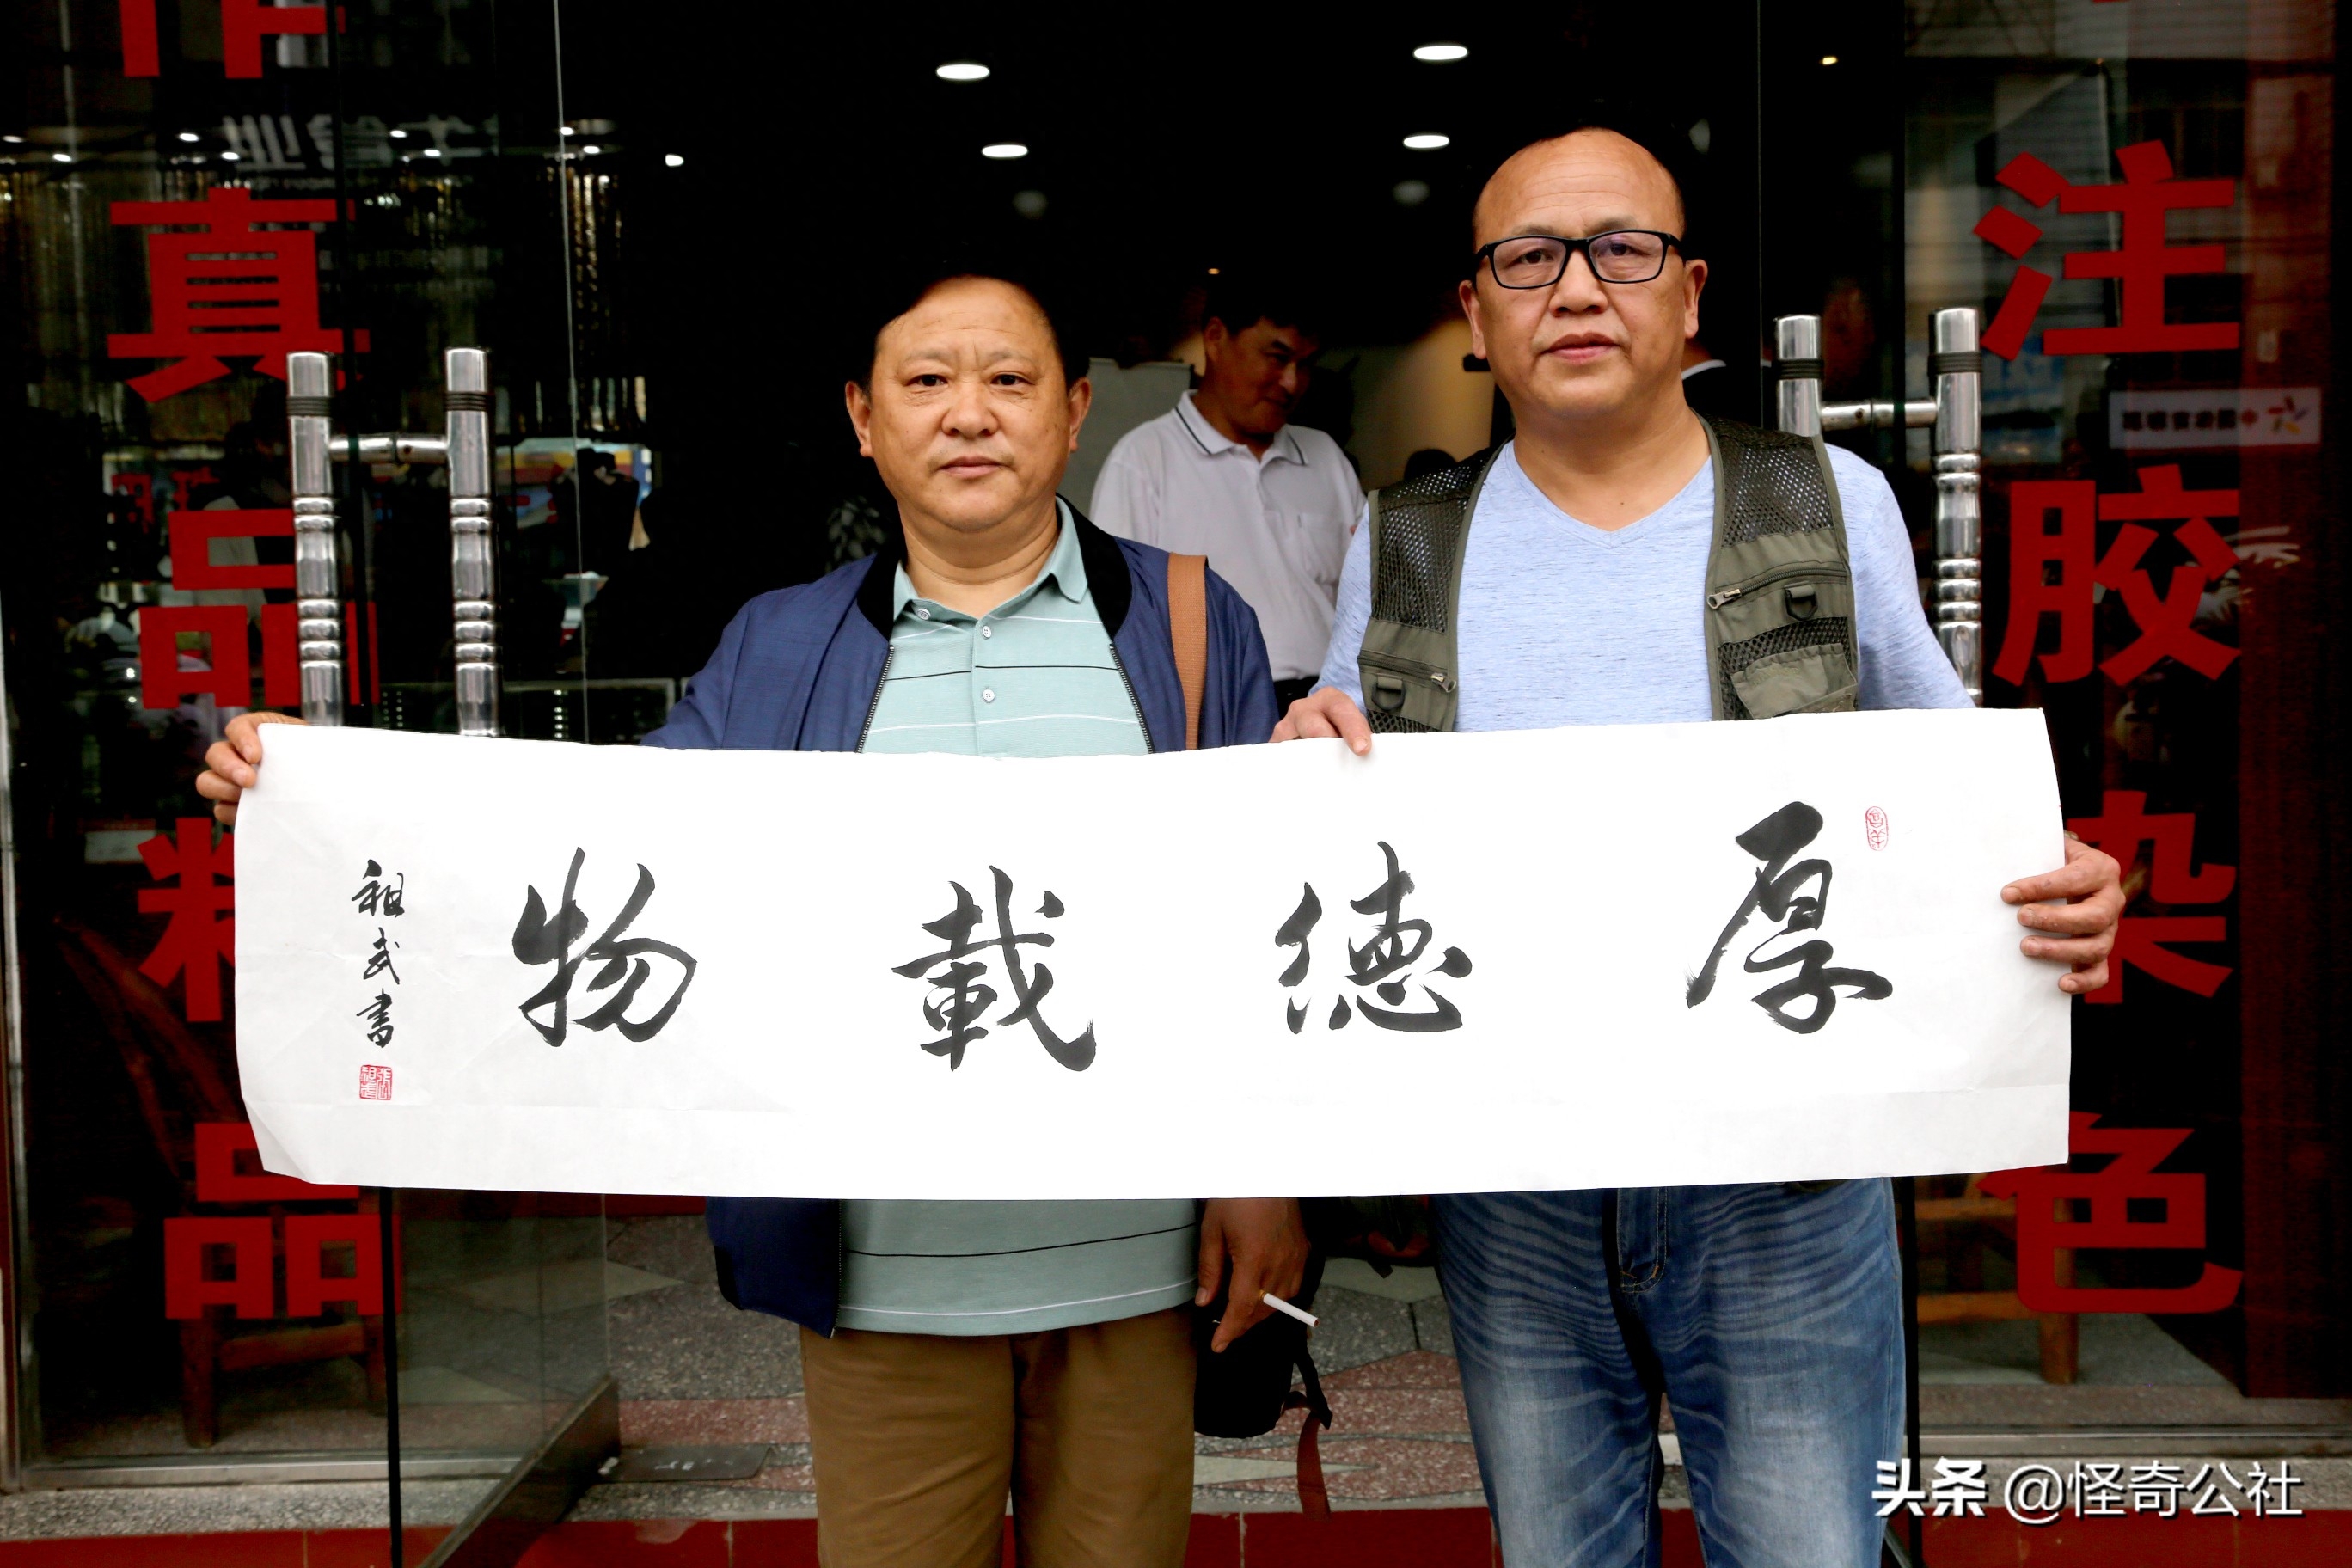 真品精品
注胶染色
厚德載物
祖武書
头条 @怪奇公社